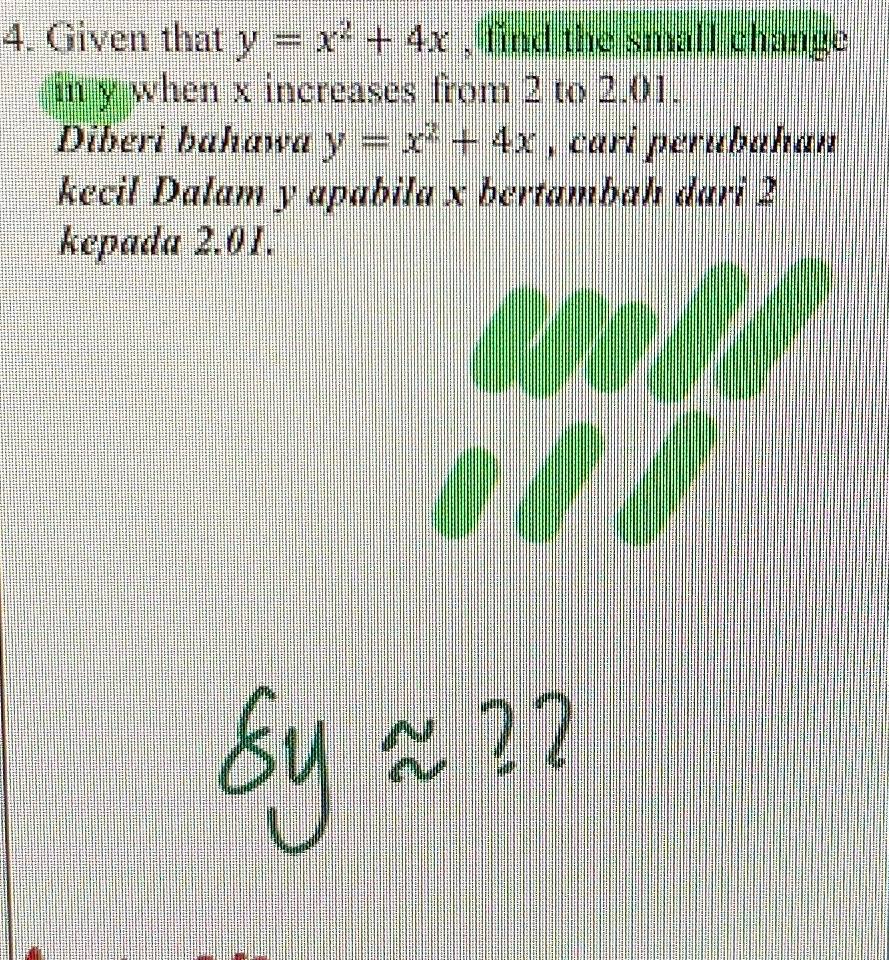 4. Given that y = x² + 4x , find the small change
in y when x increases from 2 to 2.01.
Diberi bahawa y = x² + 4x , cari perubahan
kecil Dalam y apabila x bertambah dari 2
kepada 2.01.
δy ≈ ??